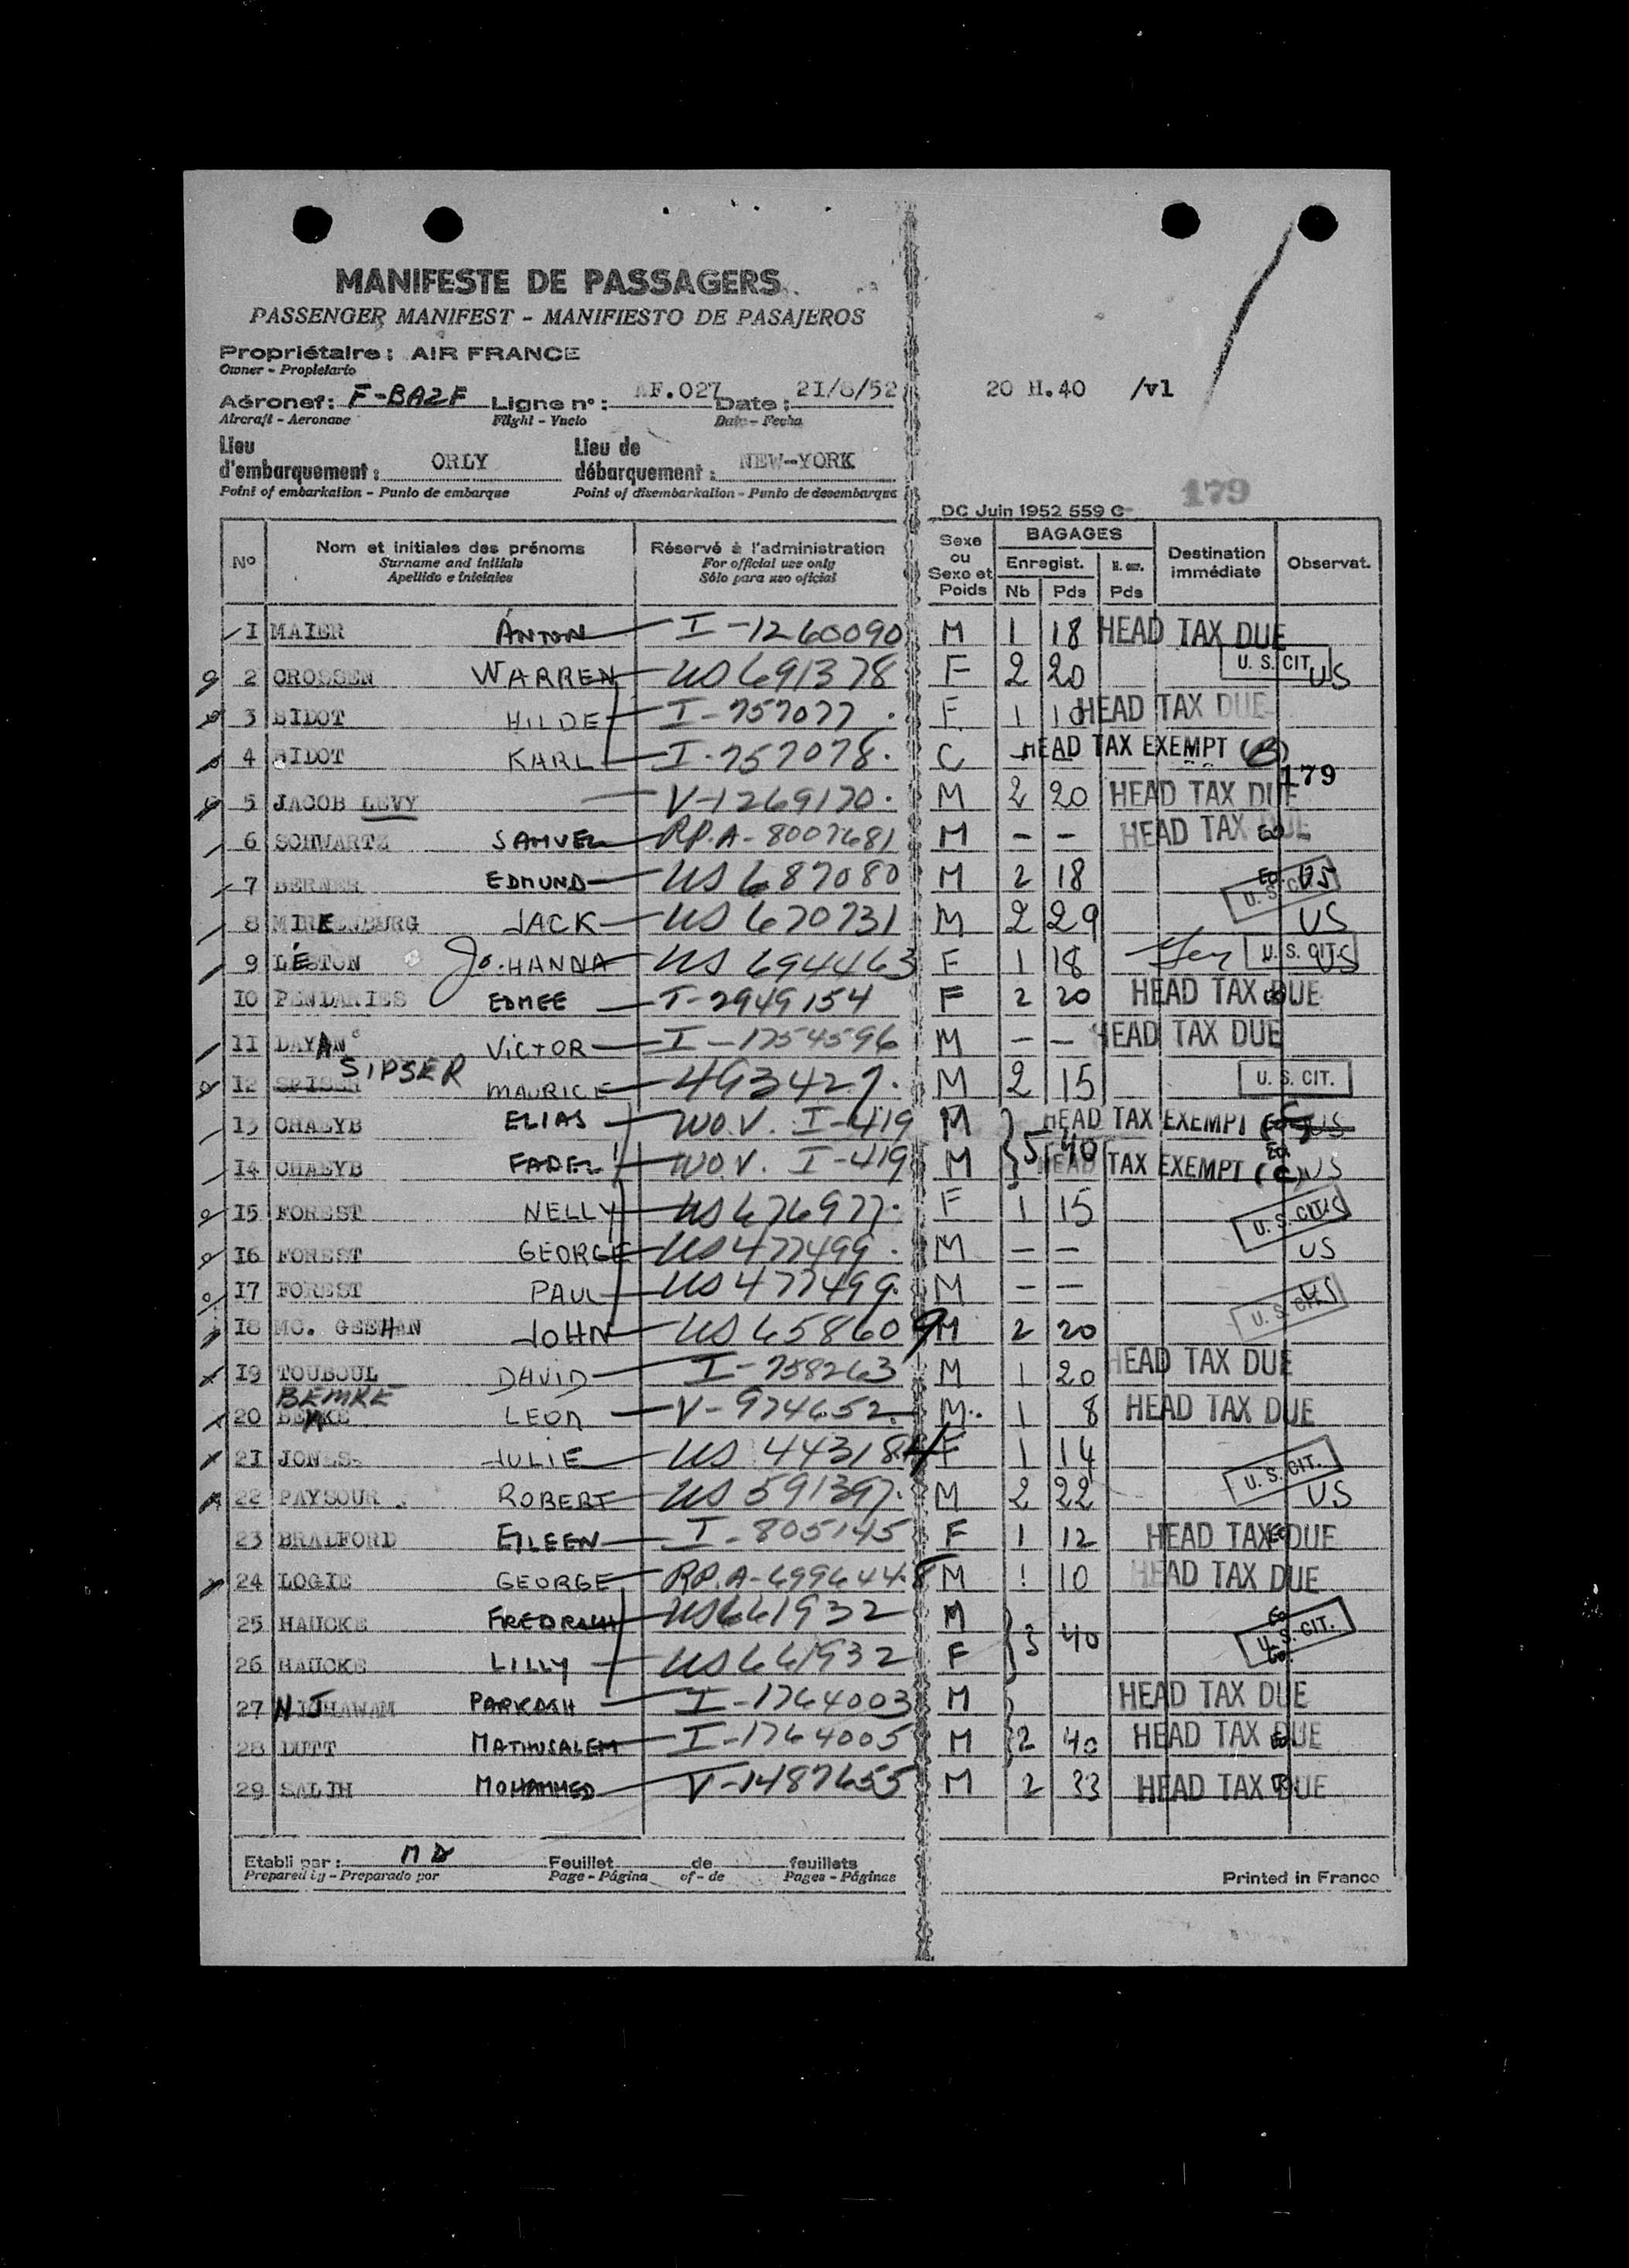 MANIFESTE DE PASSAGERS
PASSENGER MANIFEST - MANIFIESTO DE PASAJEROS
Propriétaire : AIR FRANCE
Owner - Propietario
Aéronef : F-BAZF Ligne n° : AF.027 Date : 21/8/52 20 H.40 /vl
Aircraft - Aeronave Flight - Vuelo Date - Fecha
Lieu d'embarquement : ORLY Lieu de débarquement : NEW-YORK
Point of embarkation - Punto de embarque Point of disembarkation - Punto de desembarque
179
DC Juin 1952 559 C
N° Nom et initiales des prénoms Réservé à l'administration Sexe ou Sexe et Poids BAGAGES Destination immédiate Observat.
Surname and initials For official use only Enregist. N. enr.
Apellido e iniciales Sólo para uso oficial Nb Pds Pds
1 MAIER ANTON I-1260090 M 1 18 HEAD TAX DUE
2 CROSSEN WARREN US 691378 F 2 20 U. S. CIT. US
3 BIDOT HILDE I-757077 F 1 10 HEAD TAX DUE
4 BIDOT KARL I-757078 C HEAD TAX EXEMPT (B)
179
5 JACOB LEVY V-1269170 M 2 20 HEAD TAX DUE
6 SCHWARTZ SAMUEL RP.A-8007681 M - - HEAD TAX DUE
7 BERNER EDMUND US 687080 M 2 18 U. S. CIT. US
8 JACK US 670731 M 2 29 US
9 LESTON JOHANNA US 694463 F 1 18 U. S. CIT. US
10 PENDARIES EDMEE T-2949154 F 2 20 HEAD TAX DUE
11 DAYAN VICTOR I-1754596 M - - HEAD TAX DUE
12 SIPSER MAURICE 493427 M 2 15 U. S. CIT.
13 CHALYB ELIAS WO.V. I-419 M HEAD TAX EXEMPT (C) US
14 CHALYB FADEL WO.V. I-419 M 5 40 HEAD TAX EXEMPT (C) US
15 FOREST NELLY US 676977 F 1 15 U. S. CIT. US
16 FOREST GEORGE US 477499 M - - US
17 FOREST PAUL US 477499 M - - U. S. CIT. US
18 MC. GEEHAN JOHN US 658609 M 2 20
19 TOUBOUL DAVID I-758263 M 1 20 HEAD TAX DUE
BEMKE
20 LEON V-974652 M 1 8 HEAD TAX DUE
21 JONES JULIE US 443184 F 1 14 U. S. CIT.
22 PAYSOUR ROBERT US 591397 M 2 22 US
23 BRADFORD EILEEN I-805145 F 1 12 HEAD TAX DUE
24 LOGIE GEORGE RP.A-6996448 M 1 10 HEAD TAX DUE
25 HAUCKE US 661932 M
26 HAUCKE LILLY US 661932 F 3 40 U. S. CIT.
27 NIJHAWAN PARKASH I-1764003 M HEAD TAX DUE
28 DUTT MATHUSALEM I-1764005 M 2 40 HEAD TAX DUE
29 SALIH MOHAMMED V-1487655 M 2 33 HEAD TAX DUE
Etabli par : MD Feuillet de feuillets
Prepared by - Preparado por Page - Página of - de Pages - Páginas Printed in France